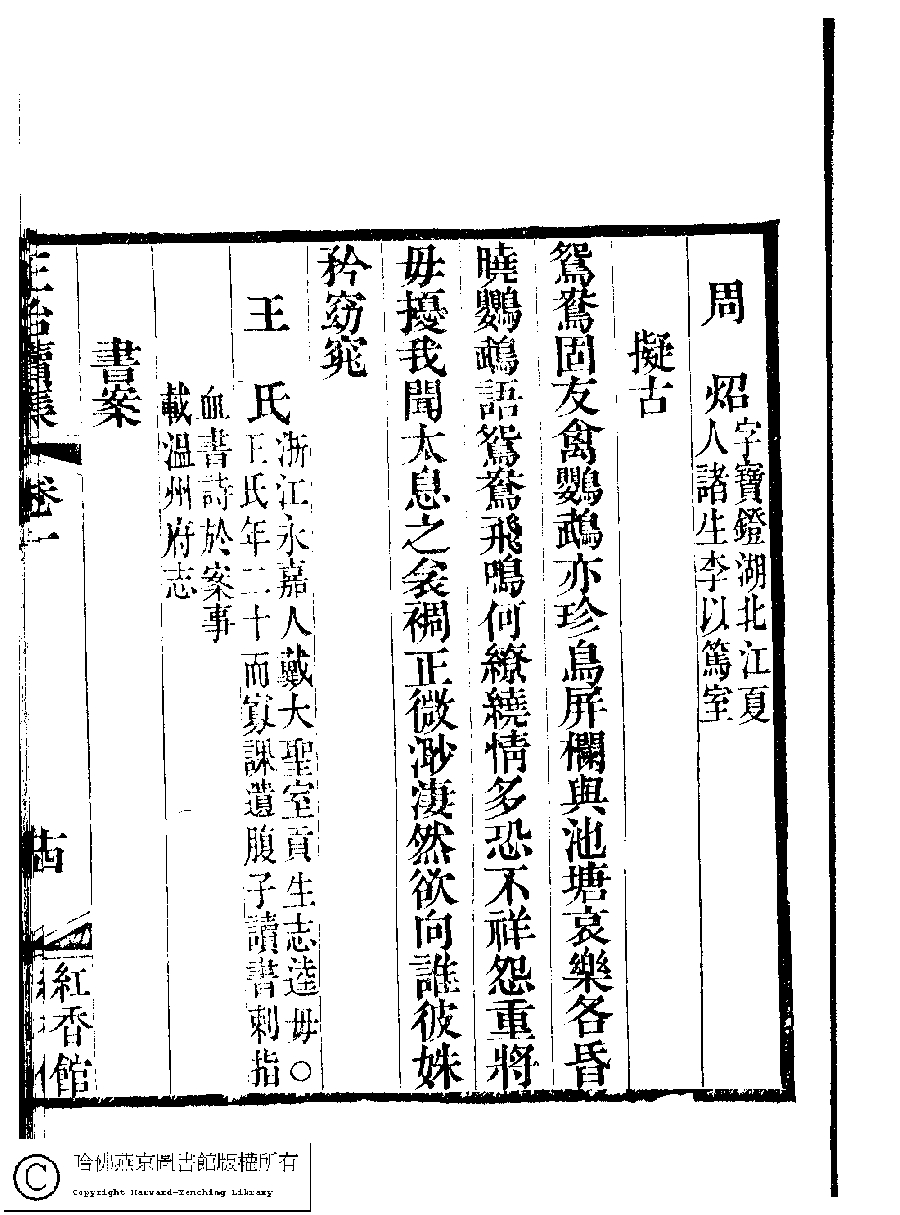 周炤字寶鐙湖北江夏
人諸生李以篤室
擬古
鴛鴦固友禽鸚鵡亦珍鳥屏欄與池塘哀樂各昏
曉鸚鵡語鴛鴦飛鳴何繚繞情多恐不祥怨重將
毋擾我聞太息之衾裯正微渺淒然欲向誰彼姝
矜窈窕
王氏浙江永嘉人戴大聖室貢生志逵毋○
王氏年二十而寡課遺腹子讀書刺指
血書詩於案事
載溫州府志
書案
卷一
紅香館
哈佛燕京圖書館版權所有
Copyright Harvard-Yenching Library